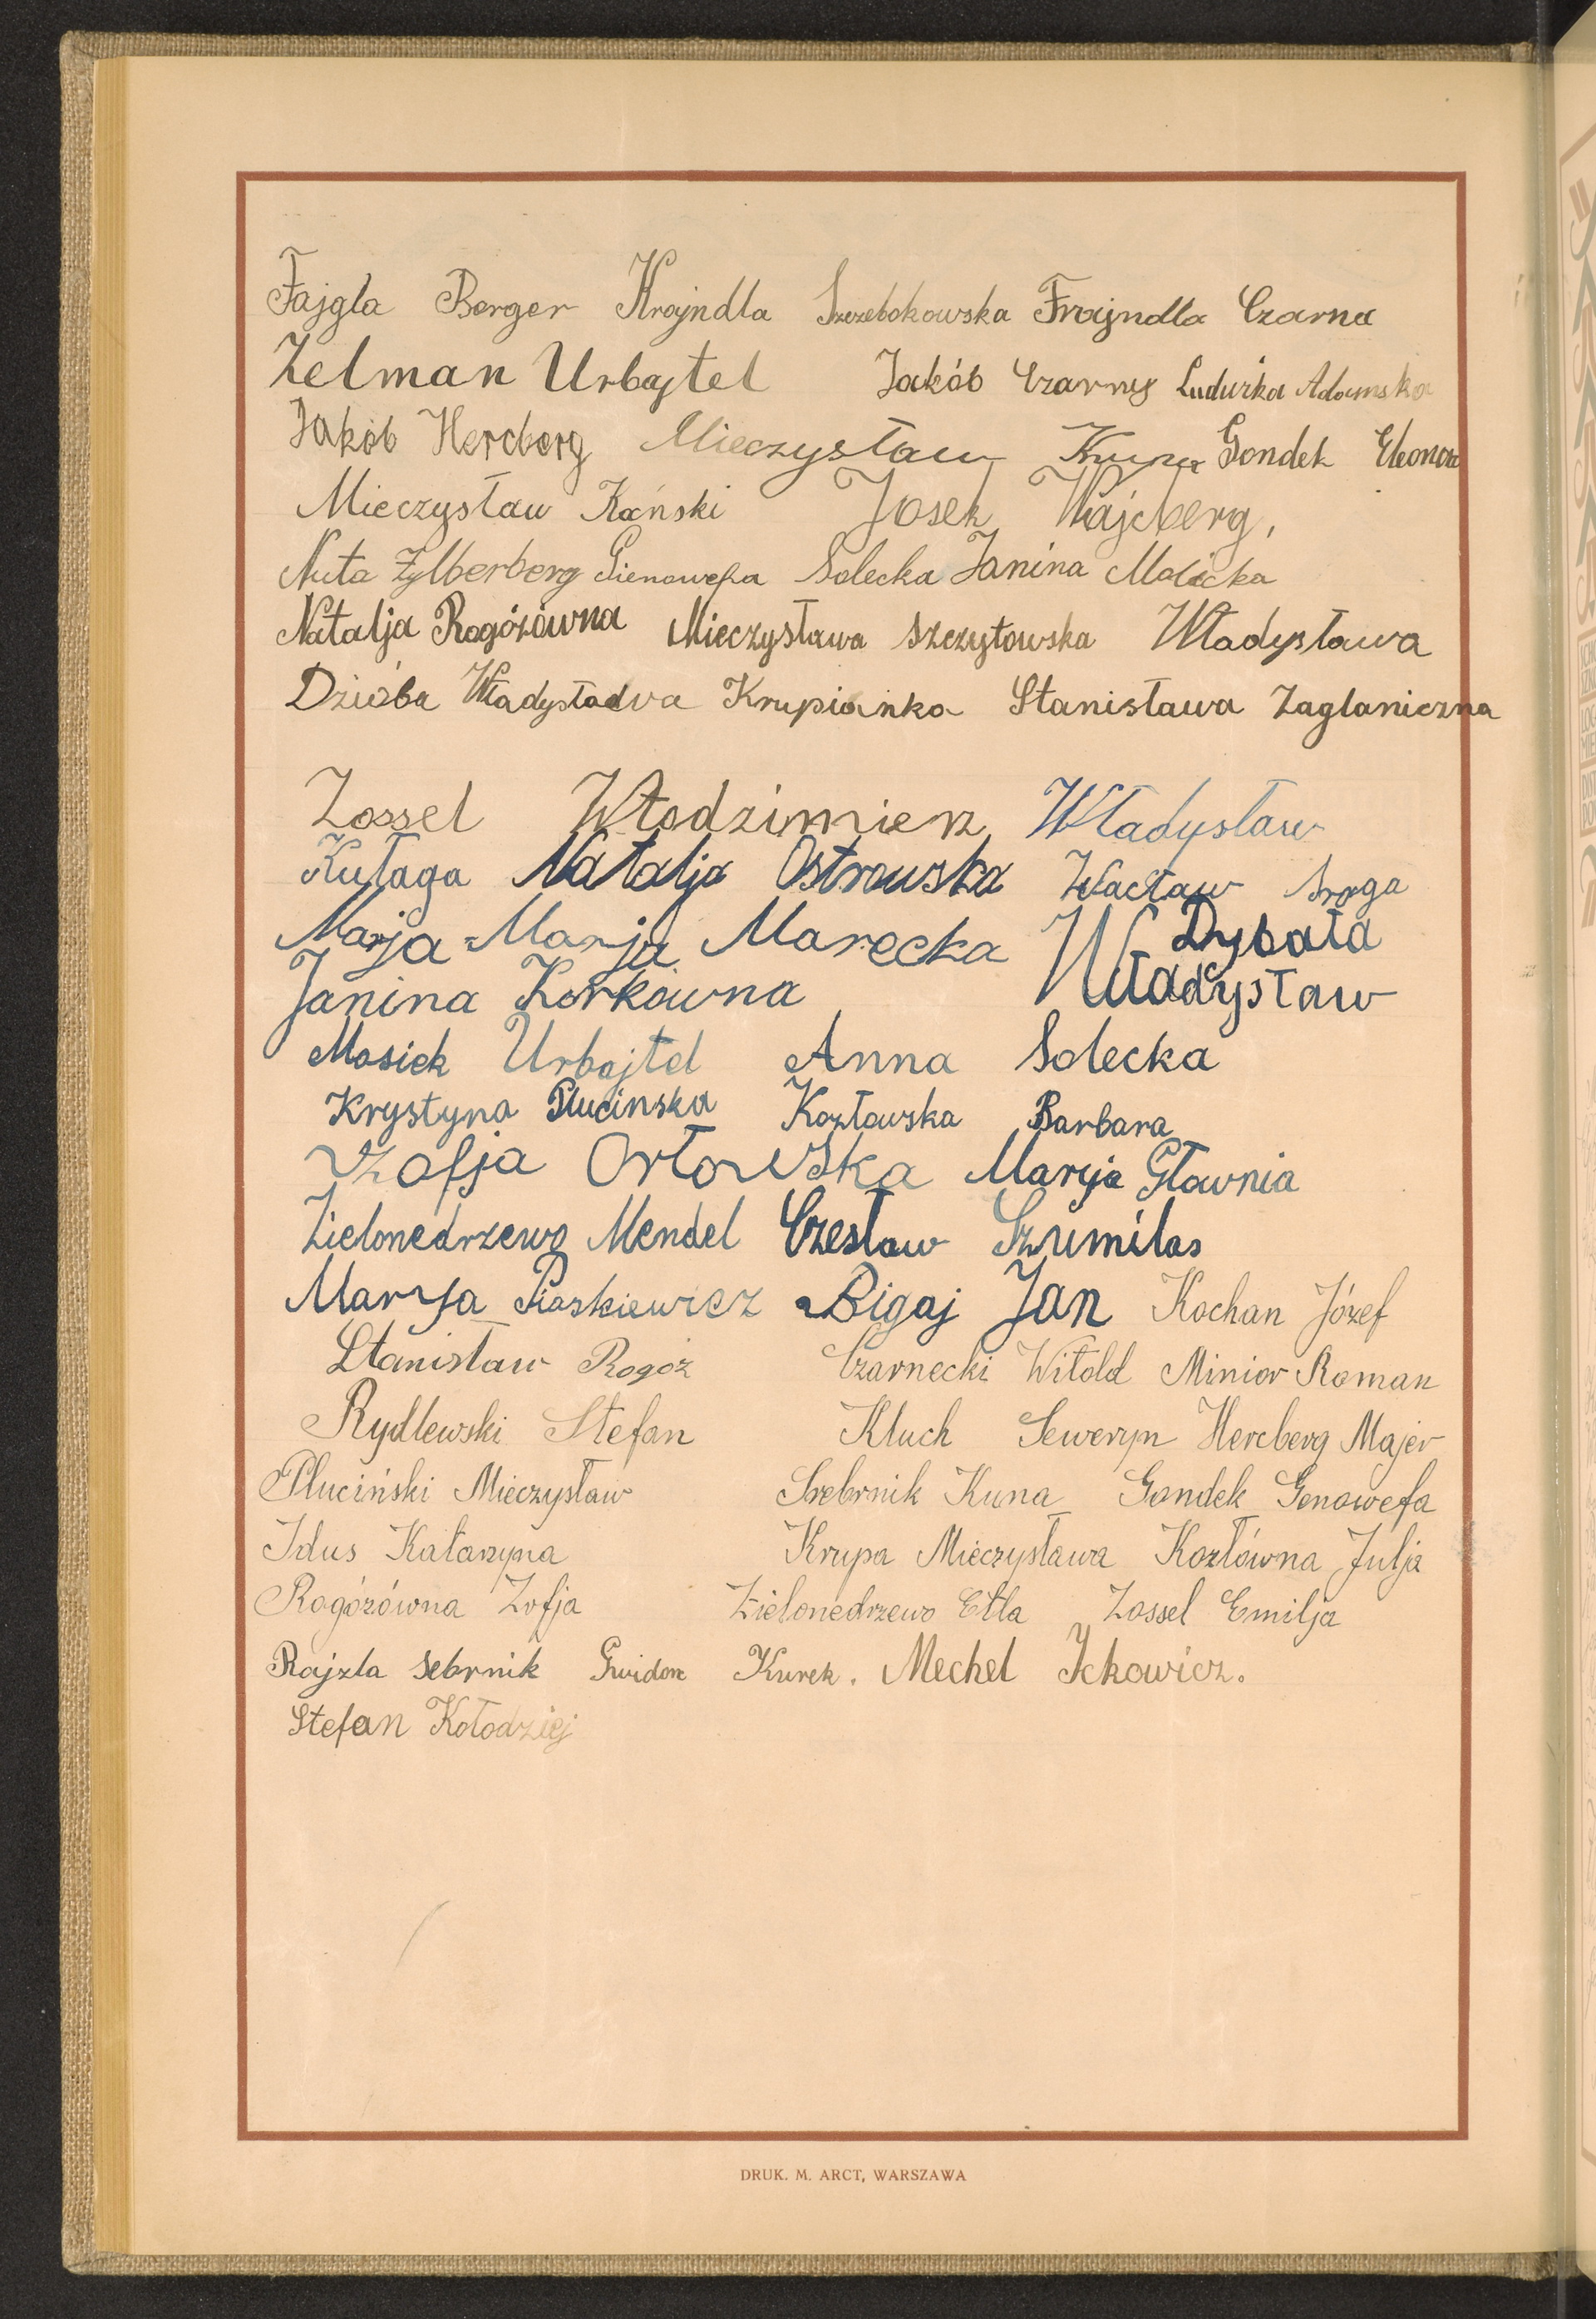 Fajgla Berger Krajndla Szczebokowska Frajndla Czarna
Zelman Urbajtel Jakób Czarny Ludwika Adamska
Jakób Hercberg Mieczysław Kupa Gondek Eleonora
Mieczysław Kański Josek Wajcberg,
Nuta Zylberberg Gienowefa Solecka Janina Molicka
Natalja Rogózówna Mieczysława Szczytowska Władysława
Dzióba Władysława Krupianka Stanisława Zaglaniczna
Zossel Włodzimierz Władysław
Kułaga Natalja Ostrowska Wacław Sroga
Marja Marja Marecka Dybała
Janina Korkówna Władysław
Mosiek Urbajtel Anna Solecka
Krystyna Plucinska Kozłowska Barbara
Zofja Orłowska Maryja Głownia
Zielonedrzewo Mendel Czesław Szumilas
Maryja Piaskiewicz Bigaj Jan Kochan Józef
Stanisław Rogoż Czarnecki Witold Minior Roman
Rydlewski Stefan Kluch Seweryn Hercberg Majer
Pluciński Mieczysław Srebrnik Kuna Gondek Genowefa
Idus Katarzyna Krupa Mieczysława Kozłówna Julja
Rogózówna Zofja Zielonedrzewo Etla Zossel Emilja
Rajzla Sebrnik Gwidon Kurek. Mechel Ickowicz.
Stefan Kołodziej
DRUK. M. ARCT, WARSZAWA